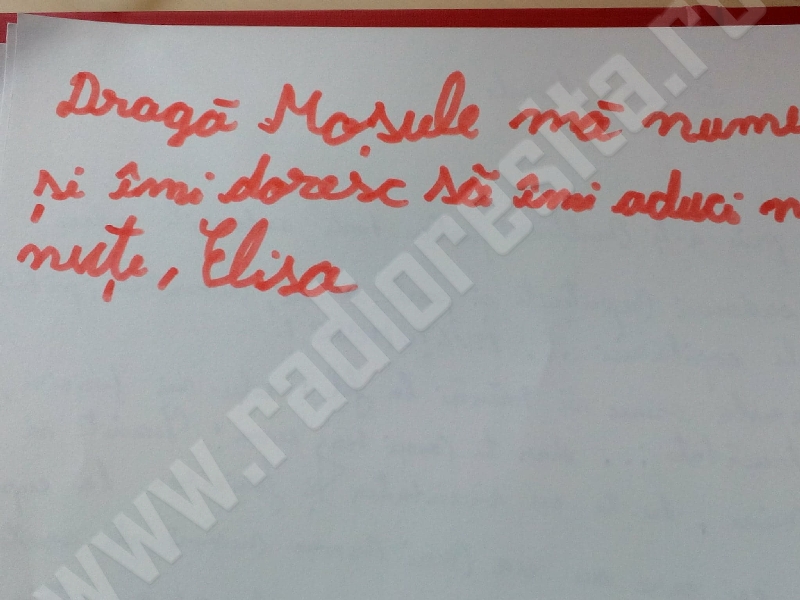 Dragă Moșule mă nume
și îmi doresc să îmi aduci m
nuțe, Elisa
www.radioresita.ro